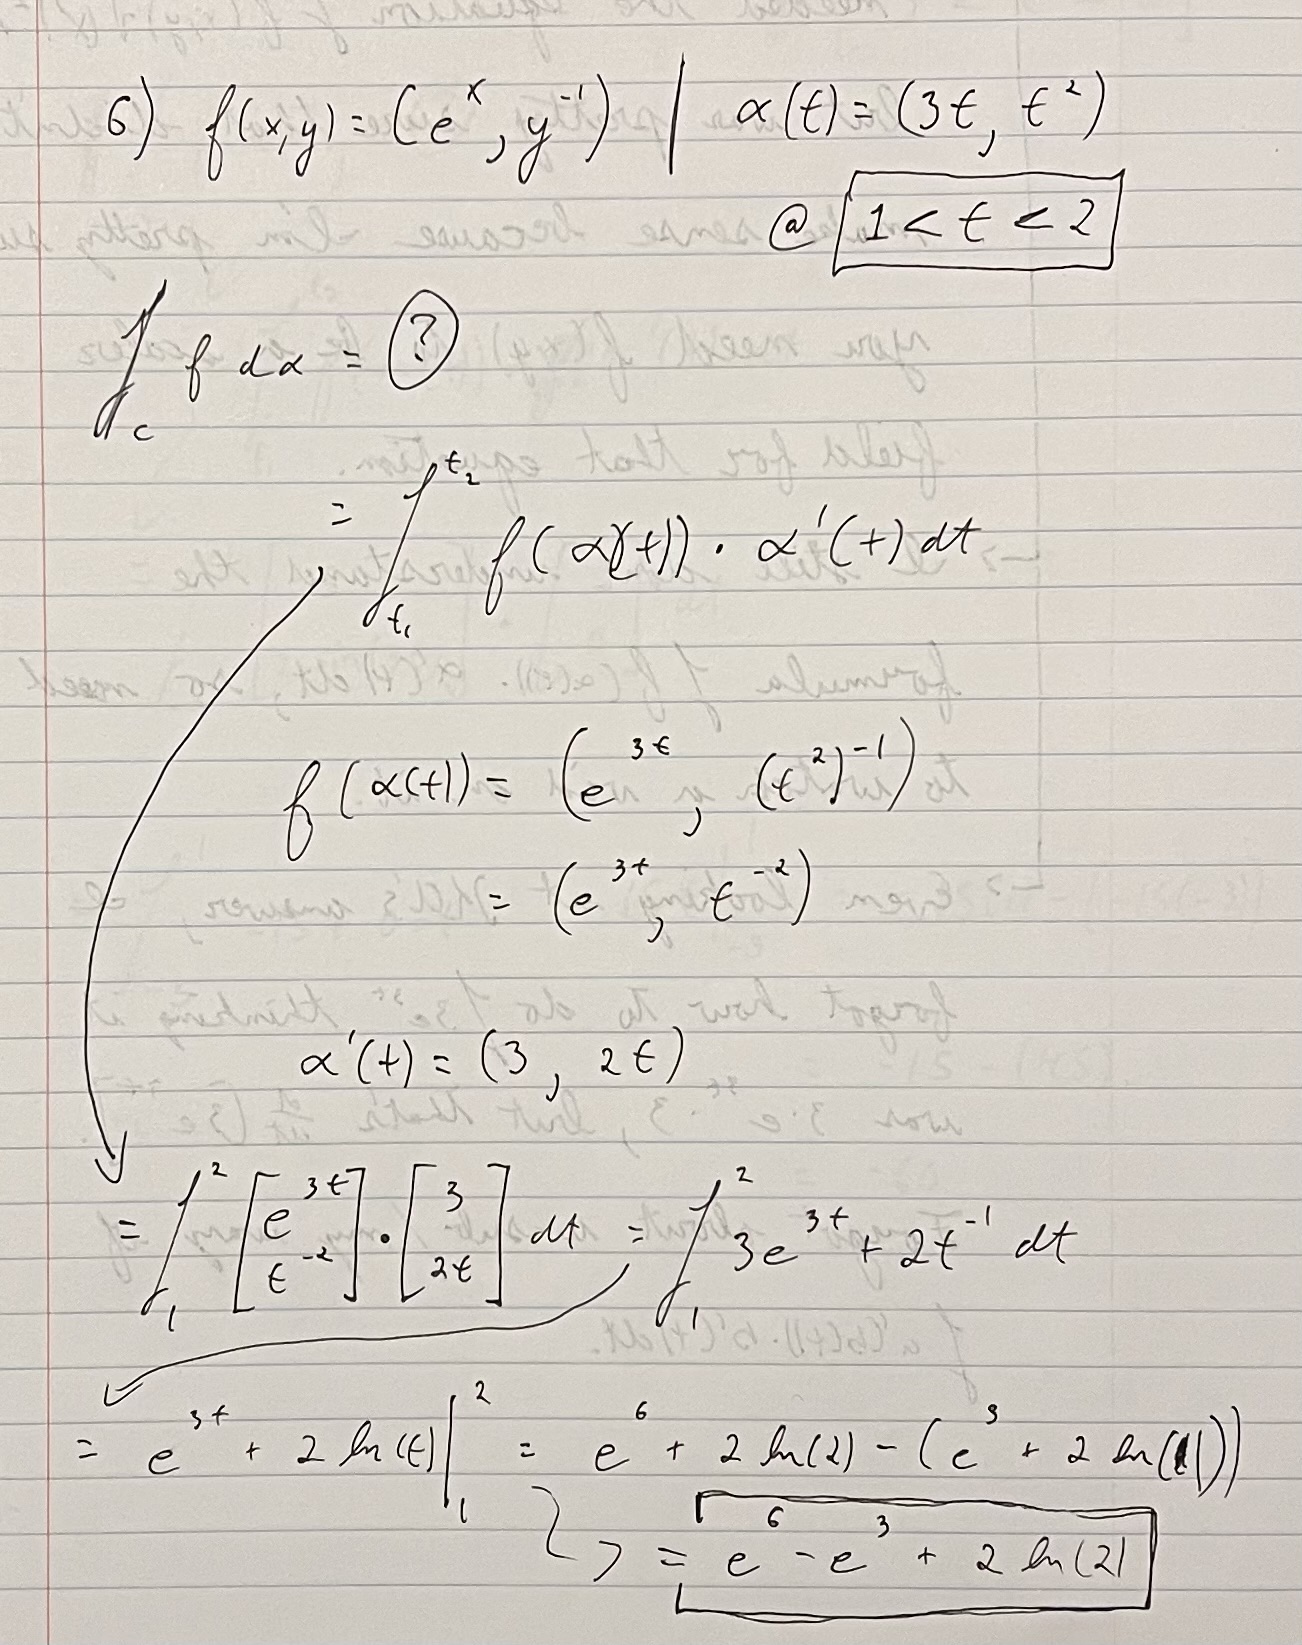 6) f(x,y) = (e^x, y^-1) | α(t) = (3t, t^2)
@ 1 < t < 2
∫_C f dα = ?
= ∫_t1^t2 f(α(t)) · α'(t) dt
f(α(t)) = (e^3t, (t^2)^-1)
= (e^3t, t^-2)
α'(t) = (3, 2t)
= ∫_1^2 [e^3t t^-2] · [3 2t] dt = ∫_1^2 3e^3t + 2t^-1 dt
= e^3t + 2 ln(t) |_1^2 = e^6 + 2 ln(2) - (e^3 + 2 ln(1))
= e^6 - e^3 + 2 ln(2)